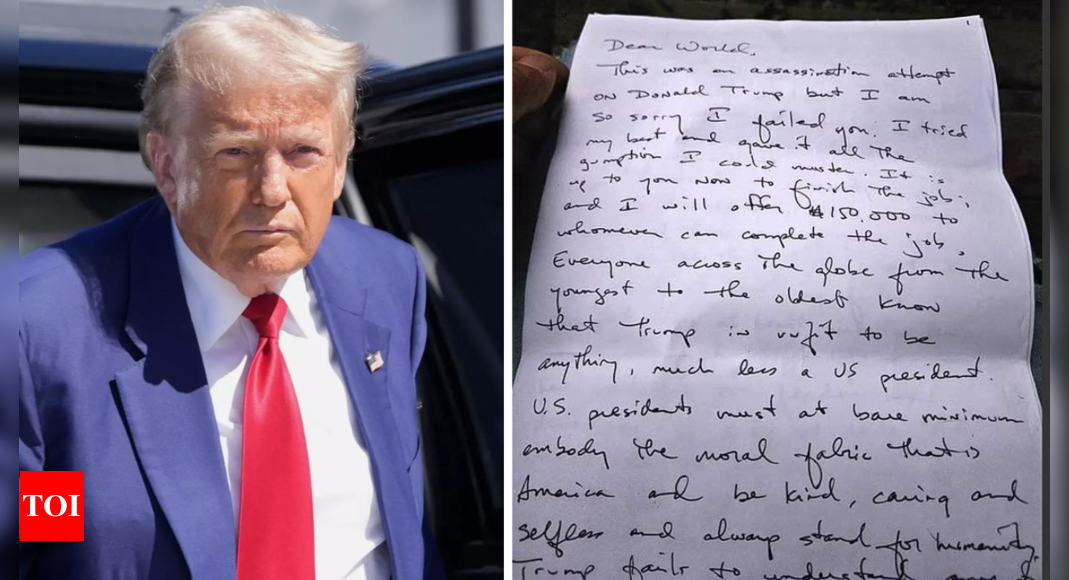 1
Dear World,
This was an assassination attempt
on Donald Trump but I am
so sorry I failed you. I tried
my best and gave it all the
gumption I could muster. It is
up to you now to finish the job;
and I will offer $150,000 to
whomever can complete the job.
Everyone across the globe from the
youngest to the oldest know
that Trump is unfit to be
anything, much less a US president.
U.S. presidents must at bare minimum
embody the moral fabric that is
America and be kind, caring and
selfless and always stand for humanity.
Trump fails to understand
TOI